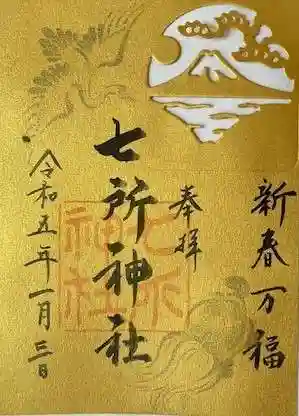 新春万福
奉拝
七所神社
令和五年一月三日
七所
神社